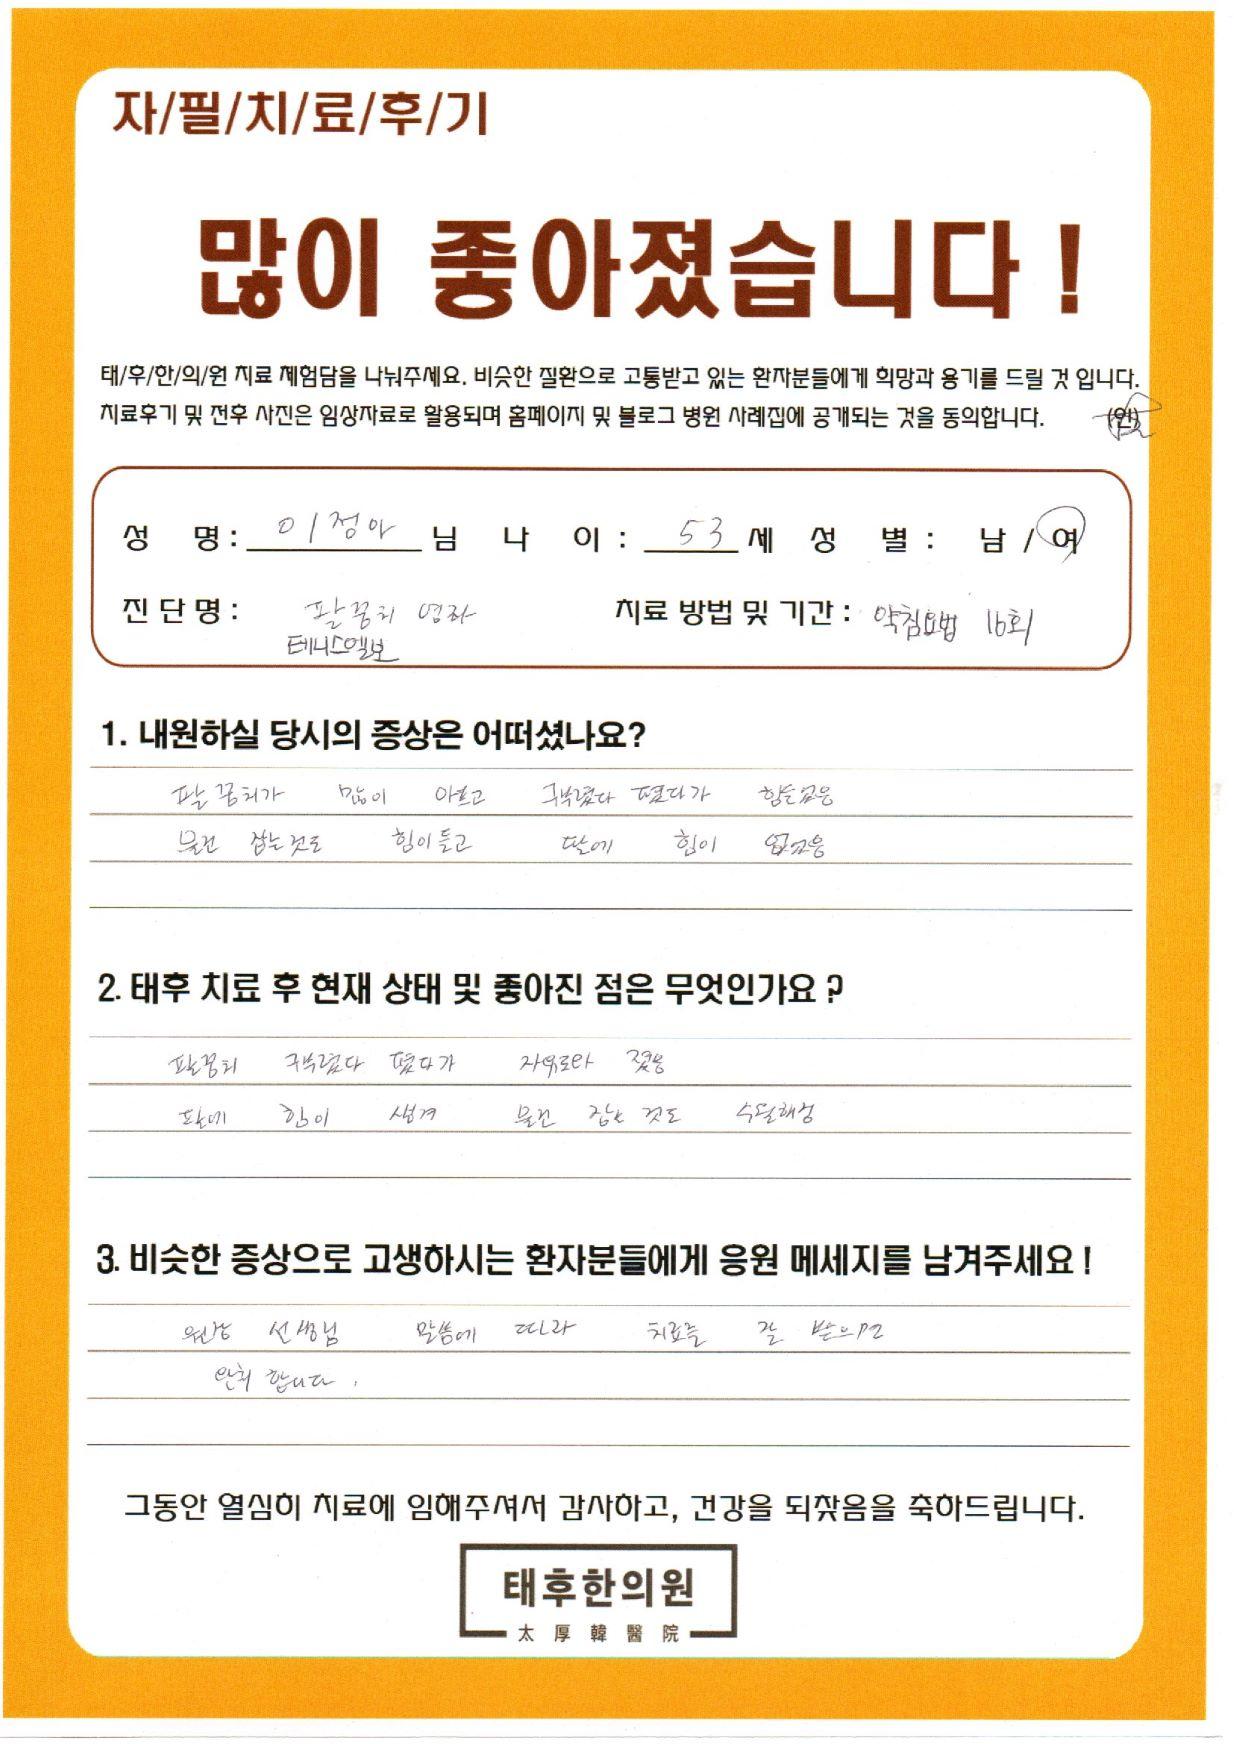 자/필/치/료/후/기
많이 좋아졌습니다!
태/후/한/의/원 치료 체험담을 나눠주세요. 비슷한 질환으로 고통받고 있는 환자분들에게 희망과 용기를 드릴 것 입니다.
치료후기 및 전후 사진은 임상자료로 활용되며 홈페이지 및 블로그 병원 사례집에 공개되는 것을 동의합니다. (인)
성 명: 이정아 님 나 이: 53 세 성 별: 남 / 여
진단명: 팔꿈치 염좌 치료 방법 및 기간: 약침요법 16회
테니스엘보
1. 내원하실 당시의 증상은 어떠셨나요?
팔꿈치가 많이 아프고 구부렸다 폈다가 힘들었음
물건 잡는것도 힘이들고 팔에 힘이 없었음
2. 태후 치료 후 현재 상태 및 좋아진 점은 무엇인가요?
팔꿈치 구부렸다 폈다가 자유로와 졌음
팔에 힘이 생겨 물건 잡는 것도 수월해짐
3. 비슷한 증상으로 고생하시는 환자분들에게 응원 메세지를 남겨주세요!
원장 선생님 말씀에 따라 치료를 잘 받으면
완치 합니다.
그동안 열심히 치료에 임해주셔서 감사하고, 건강을 되찾음을 축하드립니다.
태후한의원
太厚韓醫院